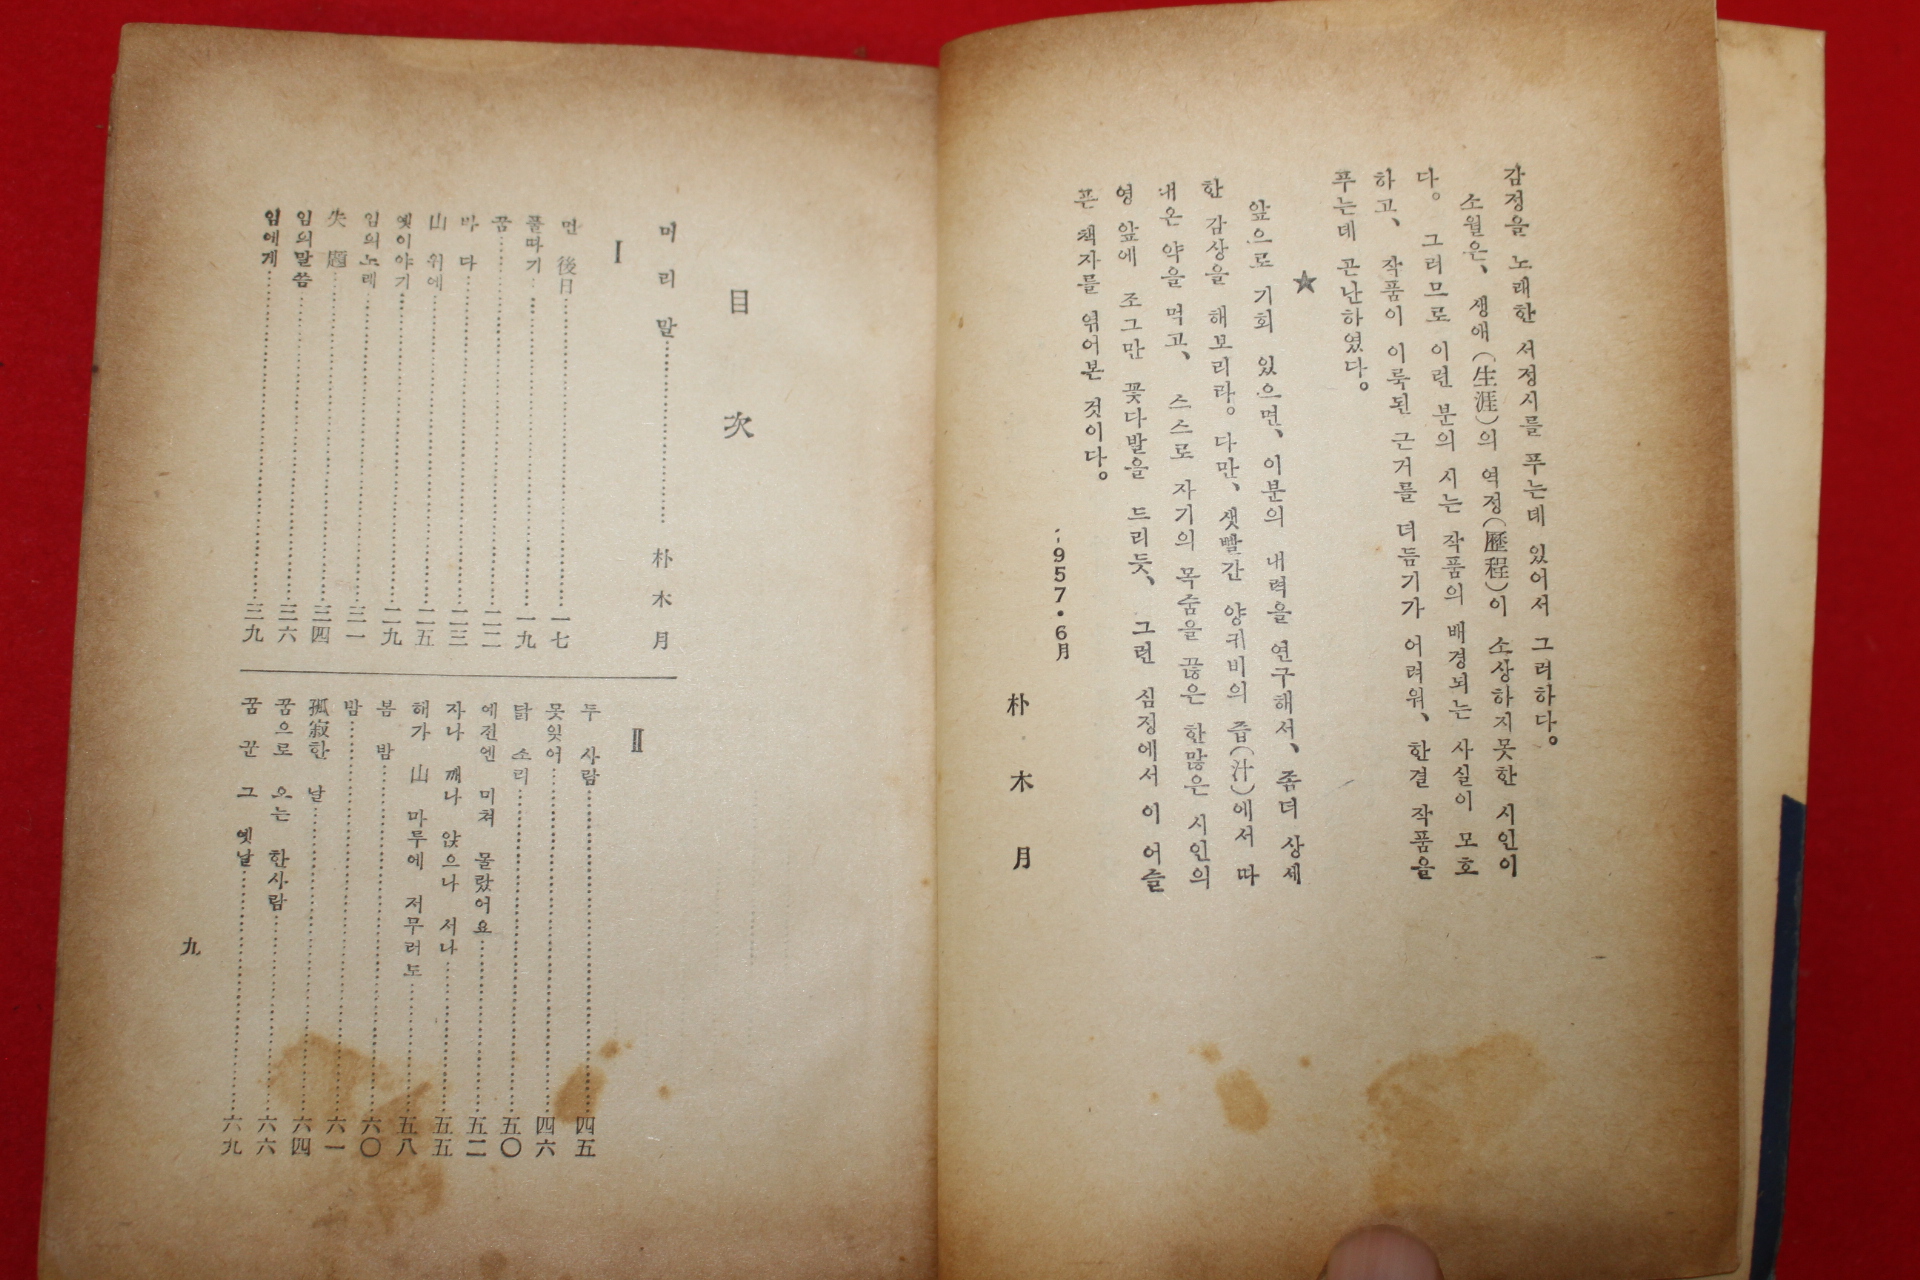 감정을 노래한 서정시를 푸는데 있어서 그러하다。
소월은、생애(生涯)의 역정(歷程)이 소상하지못한 시인이
다。그러므로 이런 분의 시는 작품의 배경되는 사실이 모호
하고、작품이 이룩된 근거를 더듬기가 어려워、한결 작품을
푸는데 곤난하였다。
★
앞으로 기회 있으면、이분의 내력을 연구해서、좀더 상세
한 감상을 해보리라。다만、샛빨간 양귀비의 즙(汁)에서 따
내온 약을 먹고、스스로 자기의 목숨을 끊은 한많은 시인의
영 앞에 조그만 꽃다발을 드리듯、그런 심정에서 이 어슬
픈 책자를 엮어본 것이다。
1957・6月
朴木月
目次
머리말…………朴木月
Ⅰ
먼 後日…………一七
풀따기…………一九
꿈…………二二
바다…………二三
山 위에…………二五
옛이야기…………二九
임의노래…………三一
失題…………三四
임의말씀…………三六
임에게…………三九
Ⅱ
두 사람…………四五
못잊어…………四六
닭 소리…………五〇
예전엔 미쳐 몰랐어요…………五二
자나 깨나 앉으나 서나…………五五
해가 山 마루에 저무러도…………五八
봄 밤…………六〇
밤…………六一
孤寂한 날…………六四
꿈으로 오는 한사람…………六六
꿈 꾼 그 옛날…………六九
九